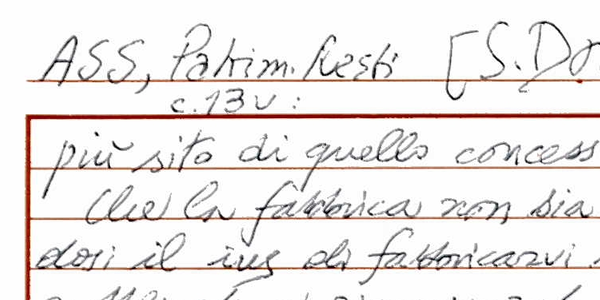 ASS, Patrim. Resti [S. Do
c. 13v:
più sito di quello concess
Che la fabbrica non sia
dosi il ius di fabbricarvi